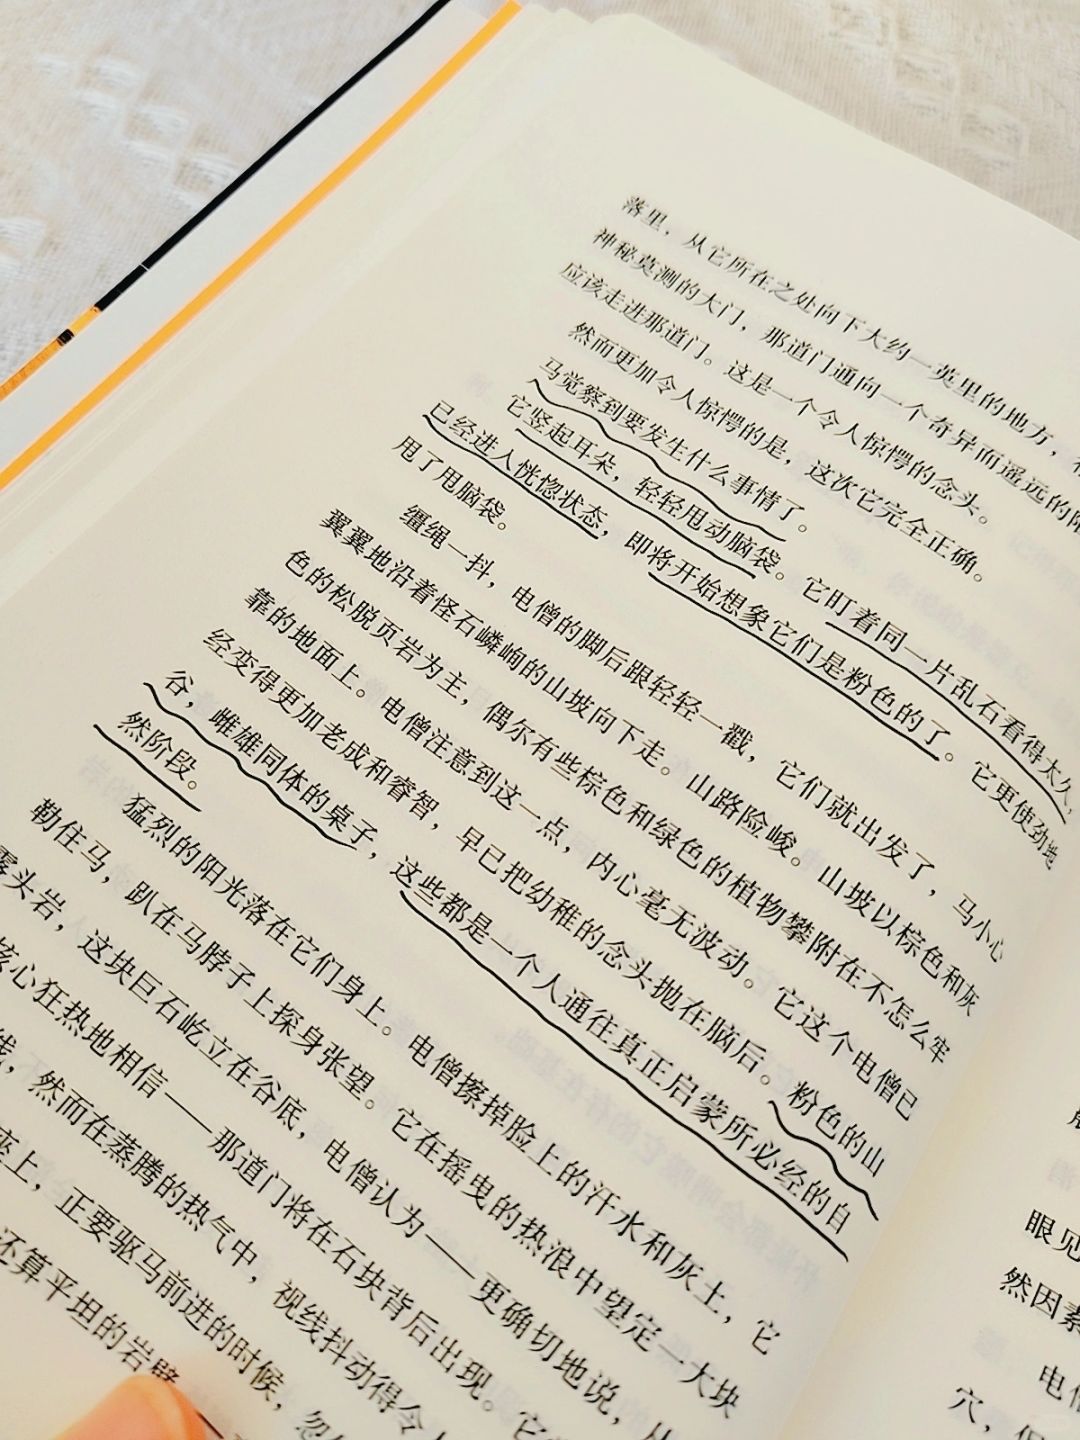 落里，从它所在之处向下大约一英里的地方，有
神秘莫测的大门，那道门通向一个奇异而遥远的
应该走进那道门。这是一个令人惊愕的念头。
然而更加令人惊愕的是，这次它完全正确。
马觉察到要发生什么事情了。
它竖起耳朵，轻轻甩动脑袋。它盯着同一片乱石看得太久，
已经进入恍惚状态，即将开始想象它们是粉色的了。它更使劲地
甩了甩脑袋。
缰绳一抖，电僧的脚后跟轻轻一戳，它们就出发了，马小心
翼翼地沿着怪石嶙峋的山坡向下走。山路险峻。山坡以棕色和灰
色的松脱页岩为主，偶尔有些棕色和绿色的植物攀附在不怎么牢
靠的地面上。电僧注意到这一点，内心毫无波动。它这个电僧已
经变得更加老成和睿智，早已把幼稚的念头抛在脑后。粉色的山
谷，雌雄同体的桌子，这些都是一个人通往真正启蒙所必经的自
然阶段。
猛烈的阳光落在它们身上。电僧擦掉脸上的汗水和灰土，它
勒住马，趴在马脖子上探身张望。它在摇曳的热浪中望定一大块
露头岩，这块巨石屹立在谷底，电僧认为——更确切地说，从
核心狂热地相信——那道门将在石块背后出现。它
线，然而在蒸腾的热气中，视线抖动得令人
座上，正要驱马前进的时候，忽
还算平坦的岩壁
眼见
然因素
电僧
穴，但